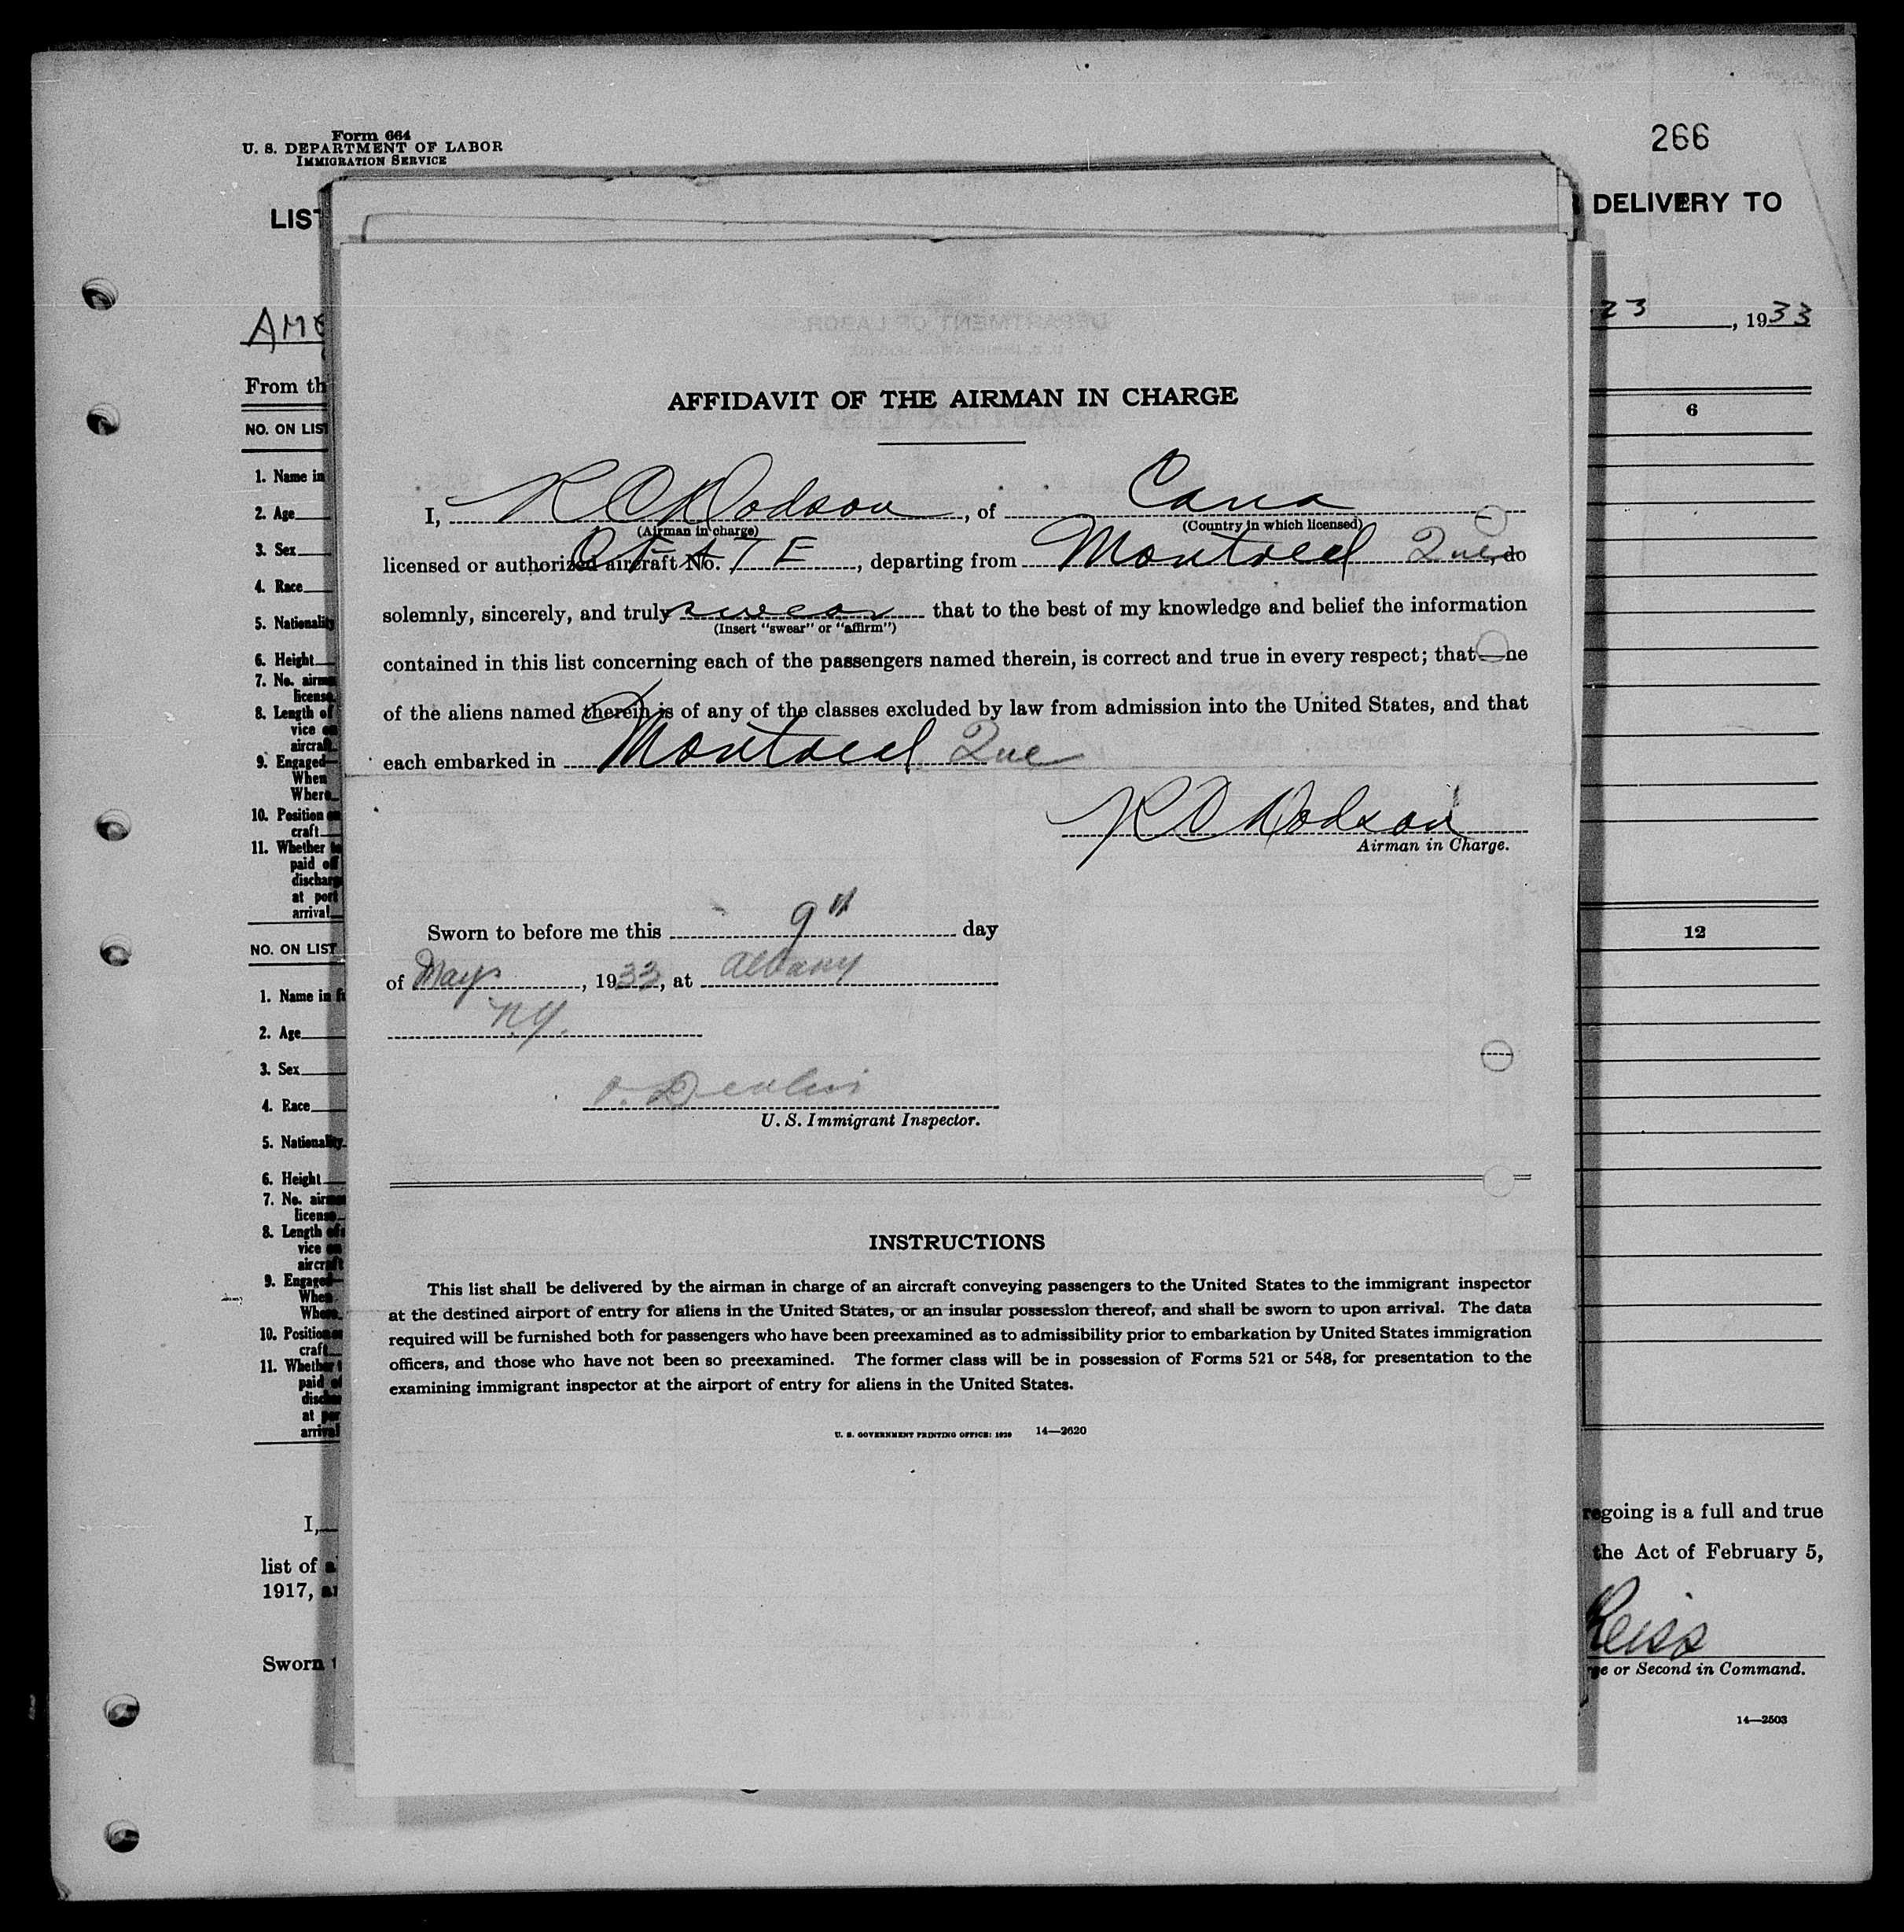 Form 664
U. S. DEPARTMENT OF LABOR
IMMIGRATION SERVICE
266
LIST
DELIVERY TO
23, 1933
From th
NO. ON LIST
6
1. Name in
2. Age
3. Sex
4. Race
5. Nationality
6. Height
7. No. airma
license
8. Length of
vice on
aircraft
9. Engaged—
When
Where
10. Position on
craft
11. Whether to
paid off
discharg
at port
arrival
NO. ON LIST
12
1. Name in fu
2. Age
3. Sex
4. Race
5. Nationality
6. Height
7. No. airman
license
8. Length of s
vice on
aircraft
9. Engaged—
When
Where
10. Position on
craft
11. Whether t
paid of
discha
at por
arrival
AFFIDAVIT OF THE AIRMAN IN CHARGE
I, R C Dodson, of Cana
(Airman in charge) (Country in which licensed)
licensed or authorized aircraft No. , departing from Montreal Que, do
solemnly, sincerely, and truly swear that to the best of my knowledge and belief the information
(Insert "swear" or "affirm")
contained in this list concerning each of the passengers named therein, is correct and true in every respect; that ne
of the aliens named therein is of any of the classes excluded by law from admission into the United States, and that
each embarked in Montreal Que
R C Dodson
Airman in Charge.
Sworn to before me this 9th day
of May, 1933, at Albany
N.Y.
U. S. Immigrant Inspector.
INSTRUCTIONS
This list shall be delivered by the airman in charge of an aircraft conveying passengers to the United States to the immigrant inspector
at the destined airport of entry for aliens in the United States, or an insular possession thereof, and shall be sworn to upon arrival. The data
required will be furnished both for passengers who have been preexamined as to admissibility prior to embarkation by United States immigration
officers, and those who have not been so preexamined. The former class will be in possession of Forms 521 or 548, for presentation to the
examining immigrant inspector at the airport of entry for aliens in the United States.
U. S. GOVERNMENT PRINTING OFFICE: 1929 14—2620
I,
regoing is a full and true
list of a
the Act of February 5,
1917, an
Reiss
Sworn t
ge or Second in Command.
14—2503